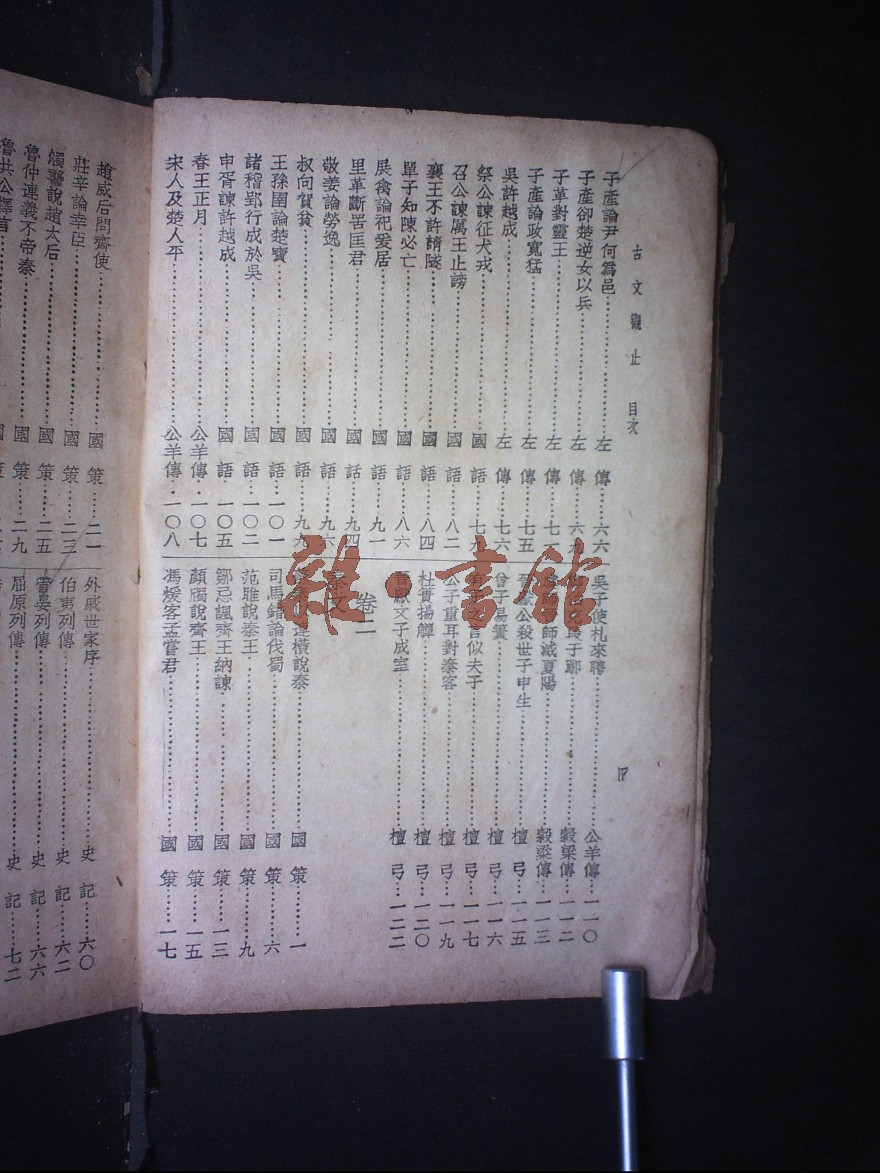 古文觀止 目次
四
子產論尹何爲邑……左傳……六六
子產卻楚逆女以兵……左傳……六九
子革對靈王……左傳……七一
子產論政寬猛……左傳……七五
吳許越成……左傳……七六
祭公諫征犬戎……國語……七九
召公諫厲王止謗……國語……八二
襄王不許請隧……國語……八四
單子知陳必亡……國語……八六
展禽論祀爰居……國語……九一
里革斷罟匡君……國語……九四
敬姜論勞逸……國語……九六
叔向賀貧……國語……九九
王孫圉論楚寶……國語……一〇一
諸稽郢行成於吳……國語……一〇二
申胥諫許越成……國語……一〇五
春王正月……公羊傳……一〇七
宋人及楚人平……公羊傳……一〇八
吳子使札來聘……公羊傳……一一〇
于鄢……穀梁傳……一一二
師滅夏陽……穀梁傳……一一三
晉獻公殺世子申生……檀弓……一一五
曾子易簀……檀弓……一一六
言似夫子……檀弓……一一七
公子重耳對秦客……檀弓……一一九
杜蕢揚觶……檀弓……一二〇
晉獻文子成室……檀弓……一二二
卷二
秦文
連橫說秦……國策……一
司馬錯論伐蜀……國策……六
范雎說秦王……國策……九
鄒忌諷齊王納諫……國策……一三
顏斶說齊王……國策……一五
馮煖客孟嘗君……國策……一七
趙威后問齊使……國策……二一
莊辛論幸臣……國策……二三
觸讋說趙太后……國策……二五
魯仲連義不帝秦……國策……二九
魯共公擇言
外戚世家序……史記……六〇
伯夷列傳……史記……六二
管晏列傳……史記……六六
屈原列傳……史記……七二
雜·書館